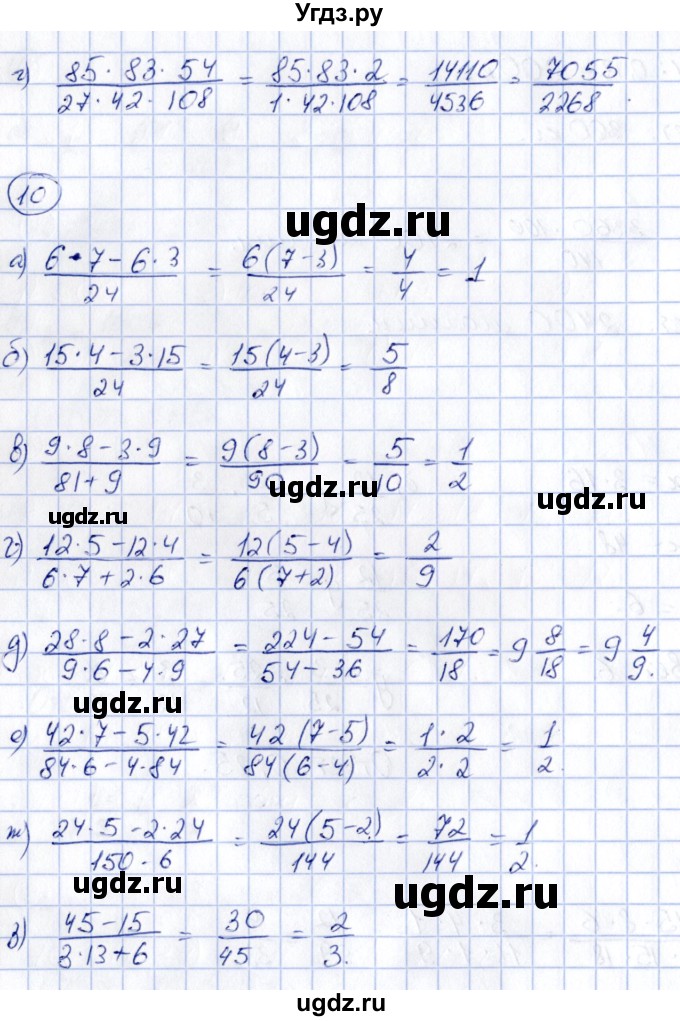 Угдз.ру
г) 85·83·54 / 27·42·108 = 85·83·2 / 1·42·108 = 14110 / 4536 = 7055 / 2268.
10
ugdz.ru
а) 6·7-6·3 / 24 = 6(7-3) / 24 = 4 / 4 = 1
б) 15·4-3·15 / 24 = 15(4-3) / 24 = 5 / 8
в) 9·8-3·9 / 81+9 = 9(8-3) / 90 = 5 / 10 = 1 / 2
ugdz.ru ugdz.ru ugdz.ru
г) 12·5-12·4 / 6·7+2·6 = 12(5-4) / 6(7+2) = 2 / 9
д) 28·8-2·27 / 9·6-4·9 = 224-54 / 54-36 = 170 / 18 = 9 8/18 = 9 4/9.
ugdz.ru
е) 42·7-5·42 / 84·6-4·84 = 42(7-5) / 84(6-4) = 1·2 / 2·2 = 1 / 2.
ж) 24·5-2·24 / 150-6 = 24(5-2) / 144 = 72 / 144 = 1 / 2.
ugdz.ru ugdz.ru
з) 45-15 / 3·13+6 = 30 / 45 = 2 / 3.
ugdz.ru